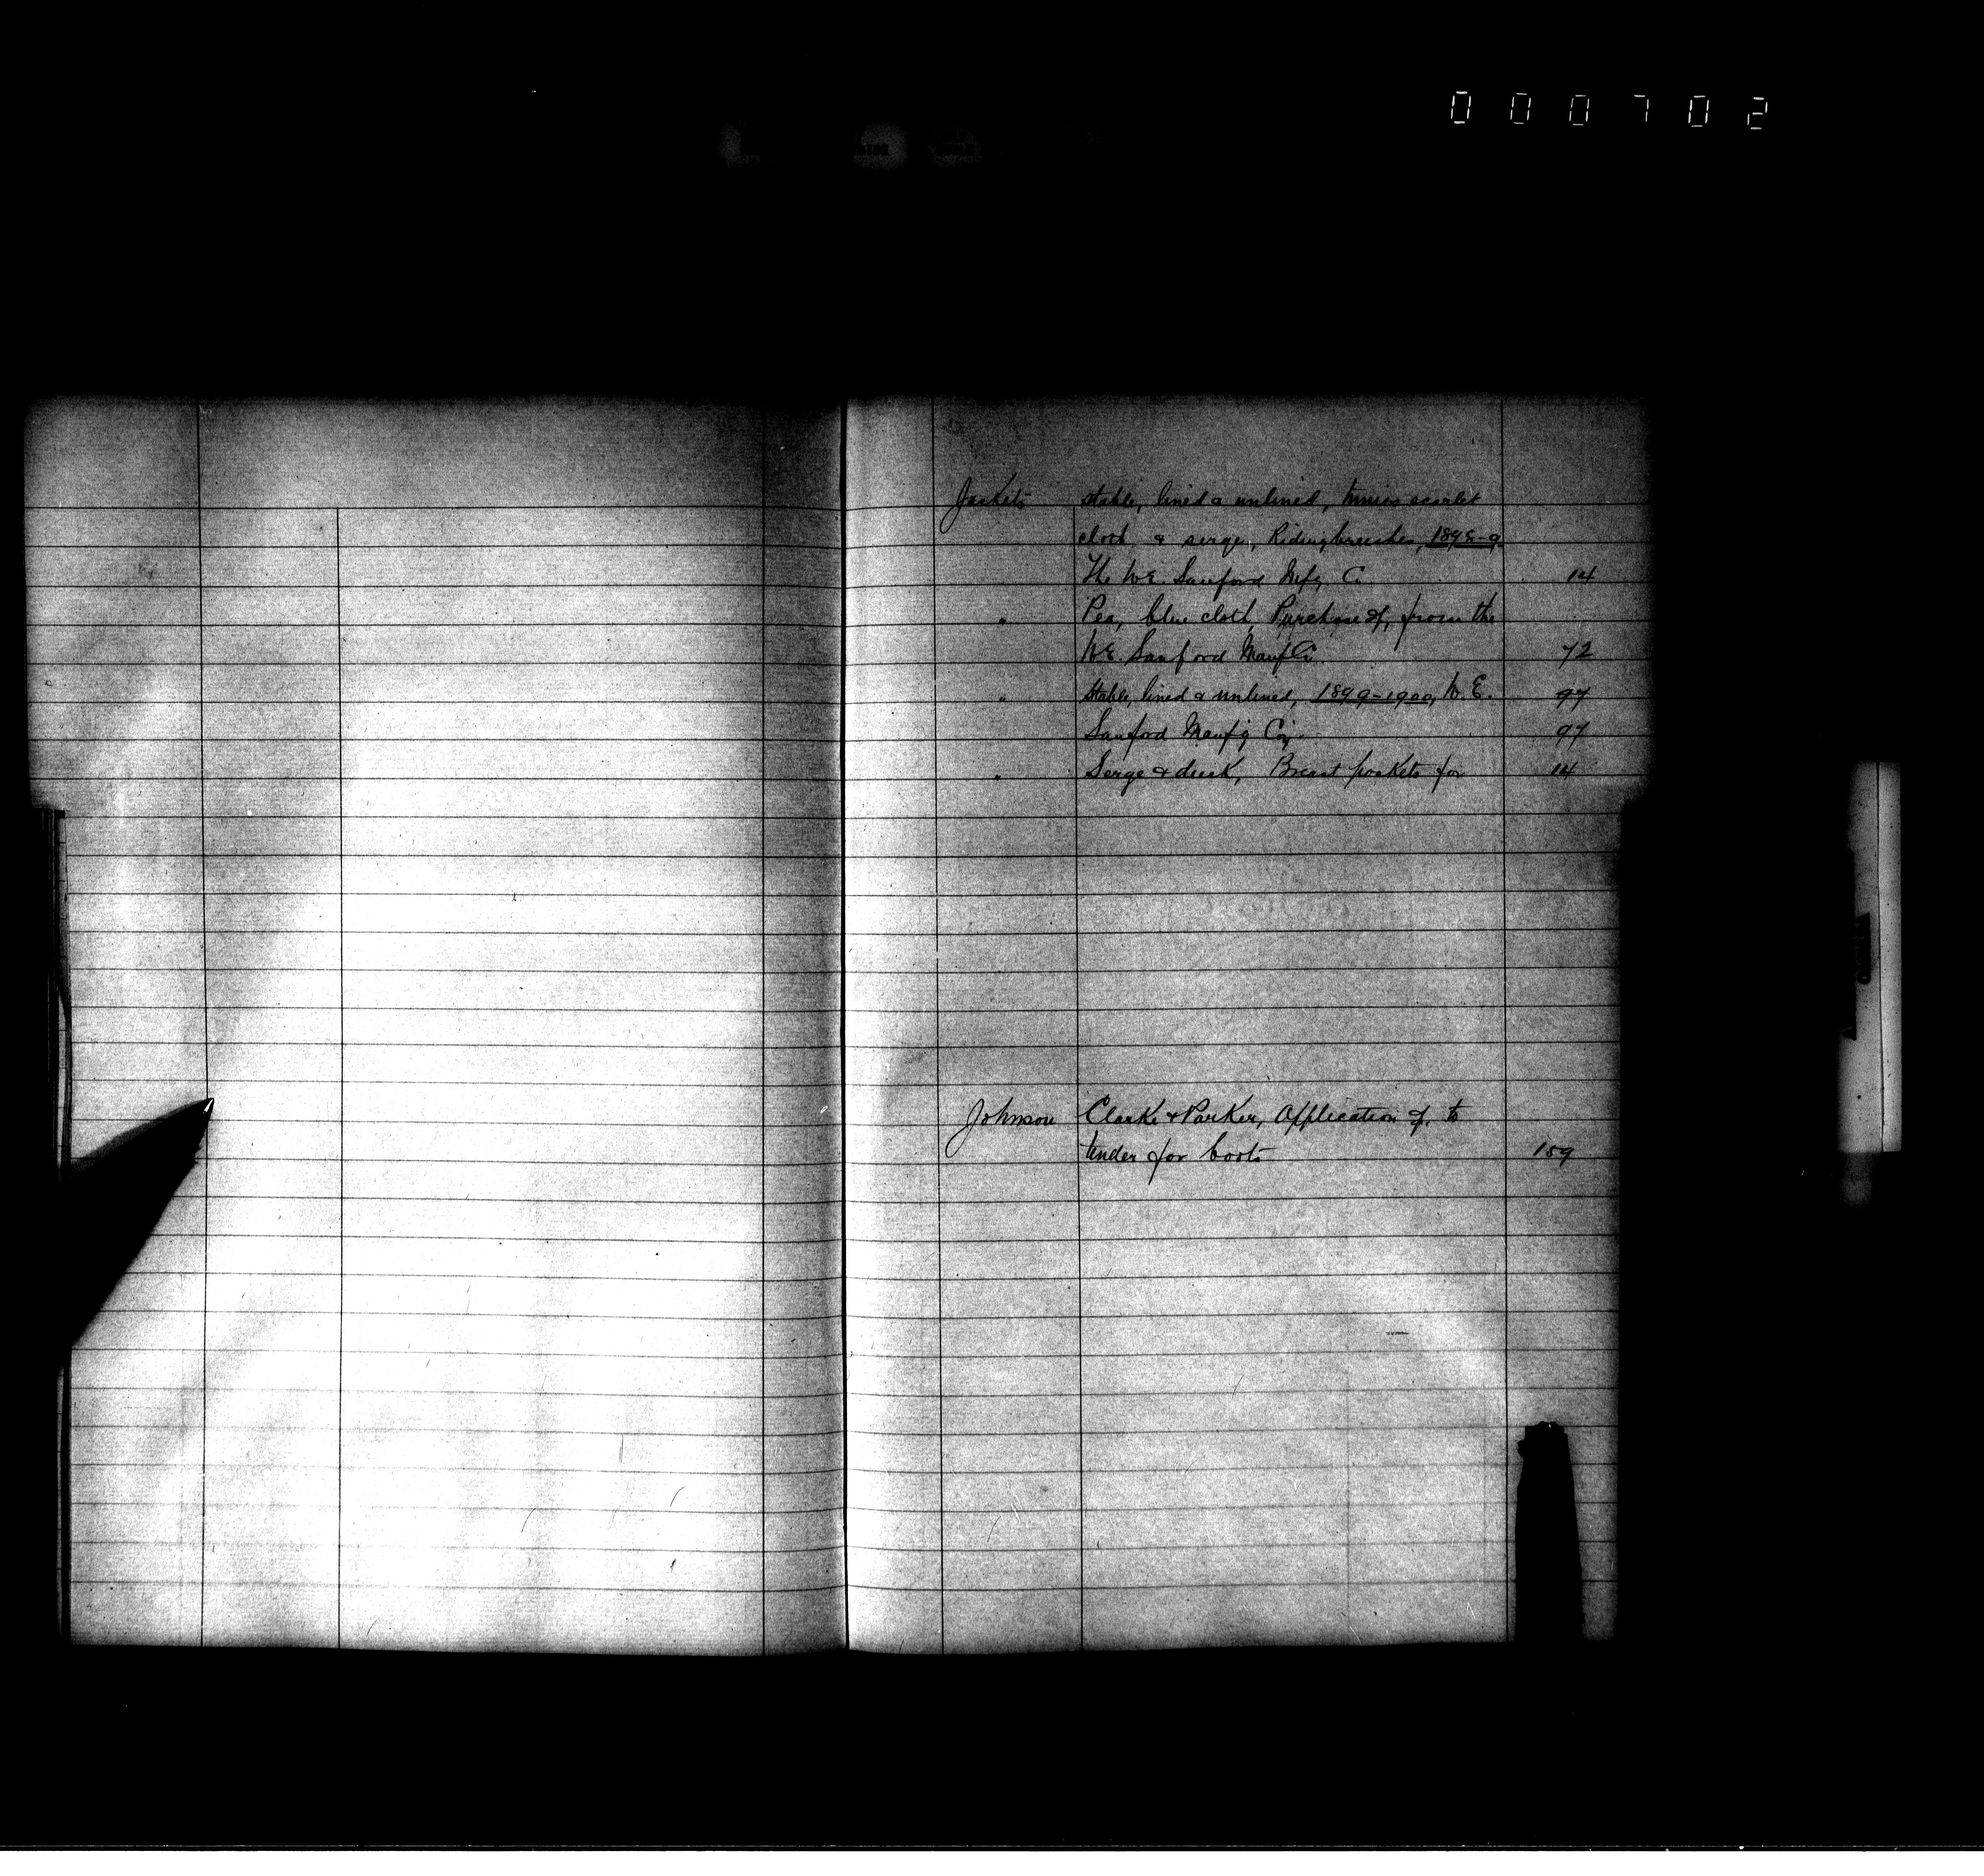 000702
Jackets stable, lined & unlined, tunics scarlet
cloth & serge, Riding breeches, 1898-9
The W.E. Sanford Mfg Co 14
" Pea, blue cloth, Purchase of, from the
W.E. Sanford Manf Co. 72
" Stable, lined & unlined, 1899-1900, W.E. 97
Sanford Manf'g Coy. 97
" Serge & duck, Breast pockets for 14
Johnson Clarke & Parker, Application of, to
tender for boots 159